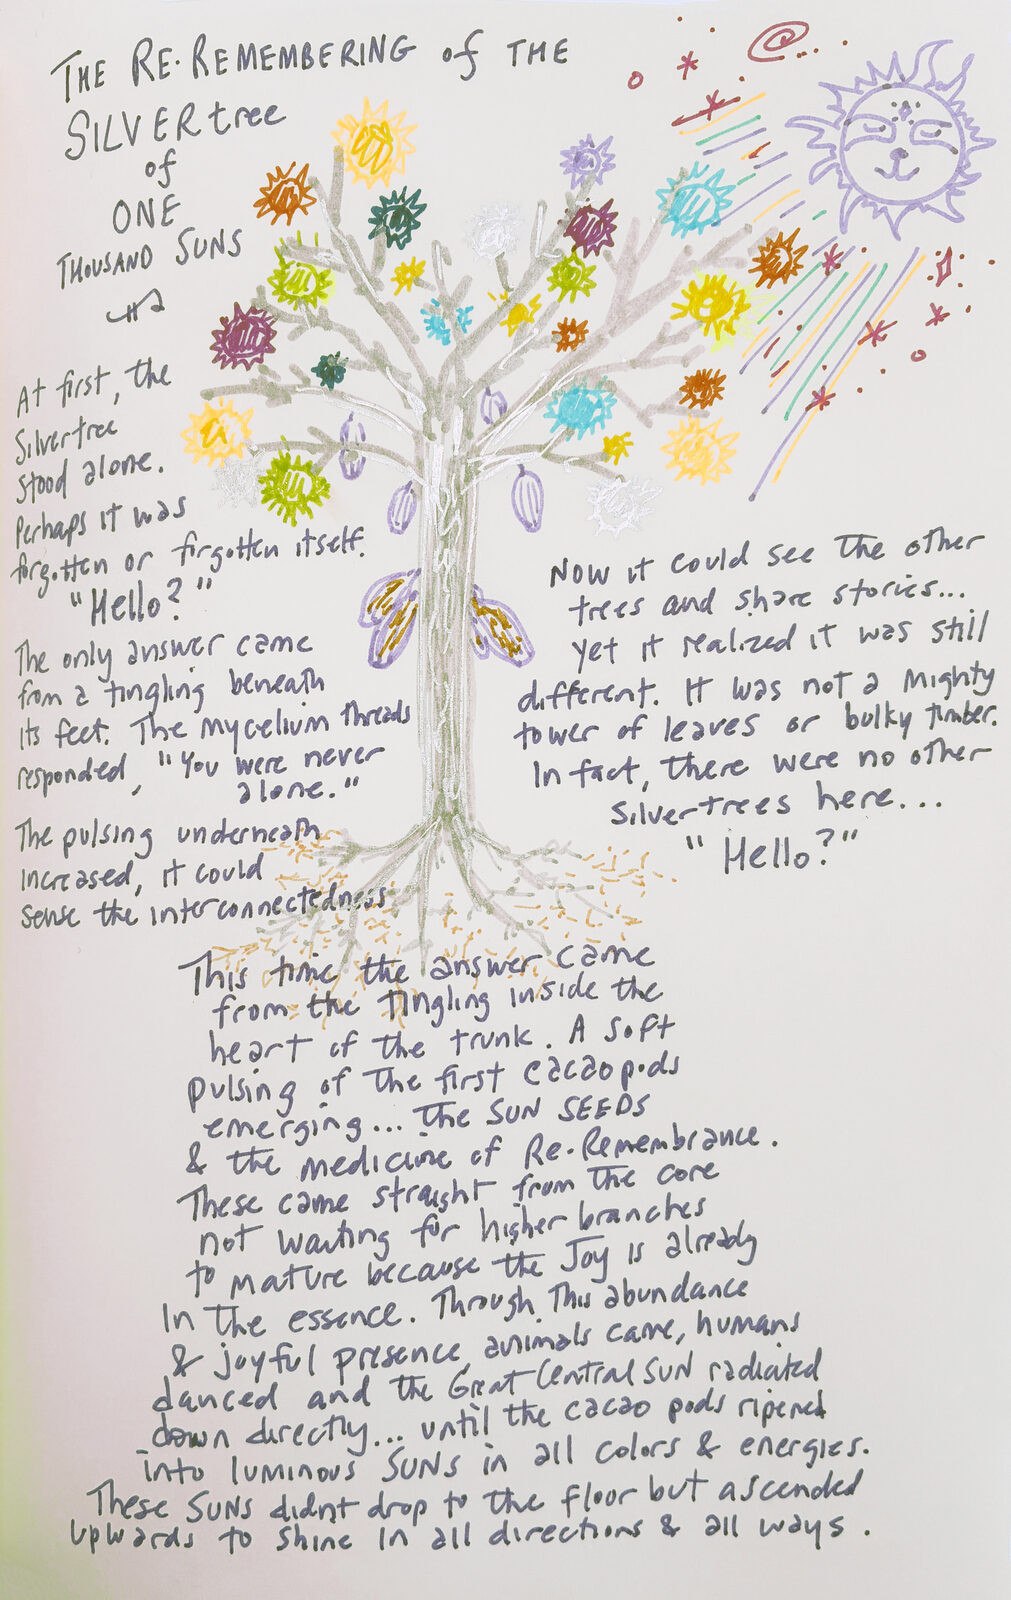 THE RE·REMEMBERING of THE
SILVERtree
of
ONE
THOUSAND SUNS
At first, the
Silvertree
stood alone.
Perhaps it was
forgotten or forgotten itself.
"Hello?"
The only answer came
from a tingling beneath
its feet. The Mycelium threads
responded, "You were never
alone."
The pulsing underneath
increased, it could
sense the interconnectedness
Now it could see the other
trees and share stories...
Yet it realized it was still
different. It was not a Mighty
tower of leaves or bulky timber.
In fact, there were no other
Silvertrees here...
"Hello?"
This time the answer came
from the tingling inside the
heart of the trunk. A soft
pulsing of the first cacao pods
emerging... the SUN SEEDS
& the medicine of Re·Remembrance.
These came straight from the core
not waiting for higher branches
to mature because the Joy is already
in the essence. Through this abundance
& joyful presence, animals came, humans
danced and the Great Central Sun radiated
down directly... until the cacao pods ripened
into luminous SUNS in all colors & energies.
These SUNS didn't drop to the floor but ascended
upwards to shine in all directions & all ways.